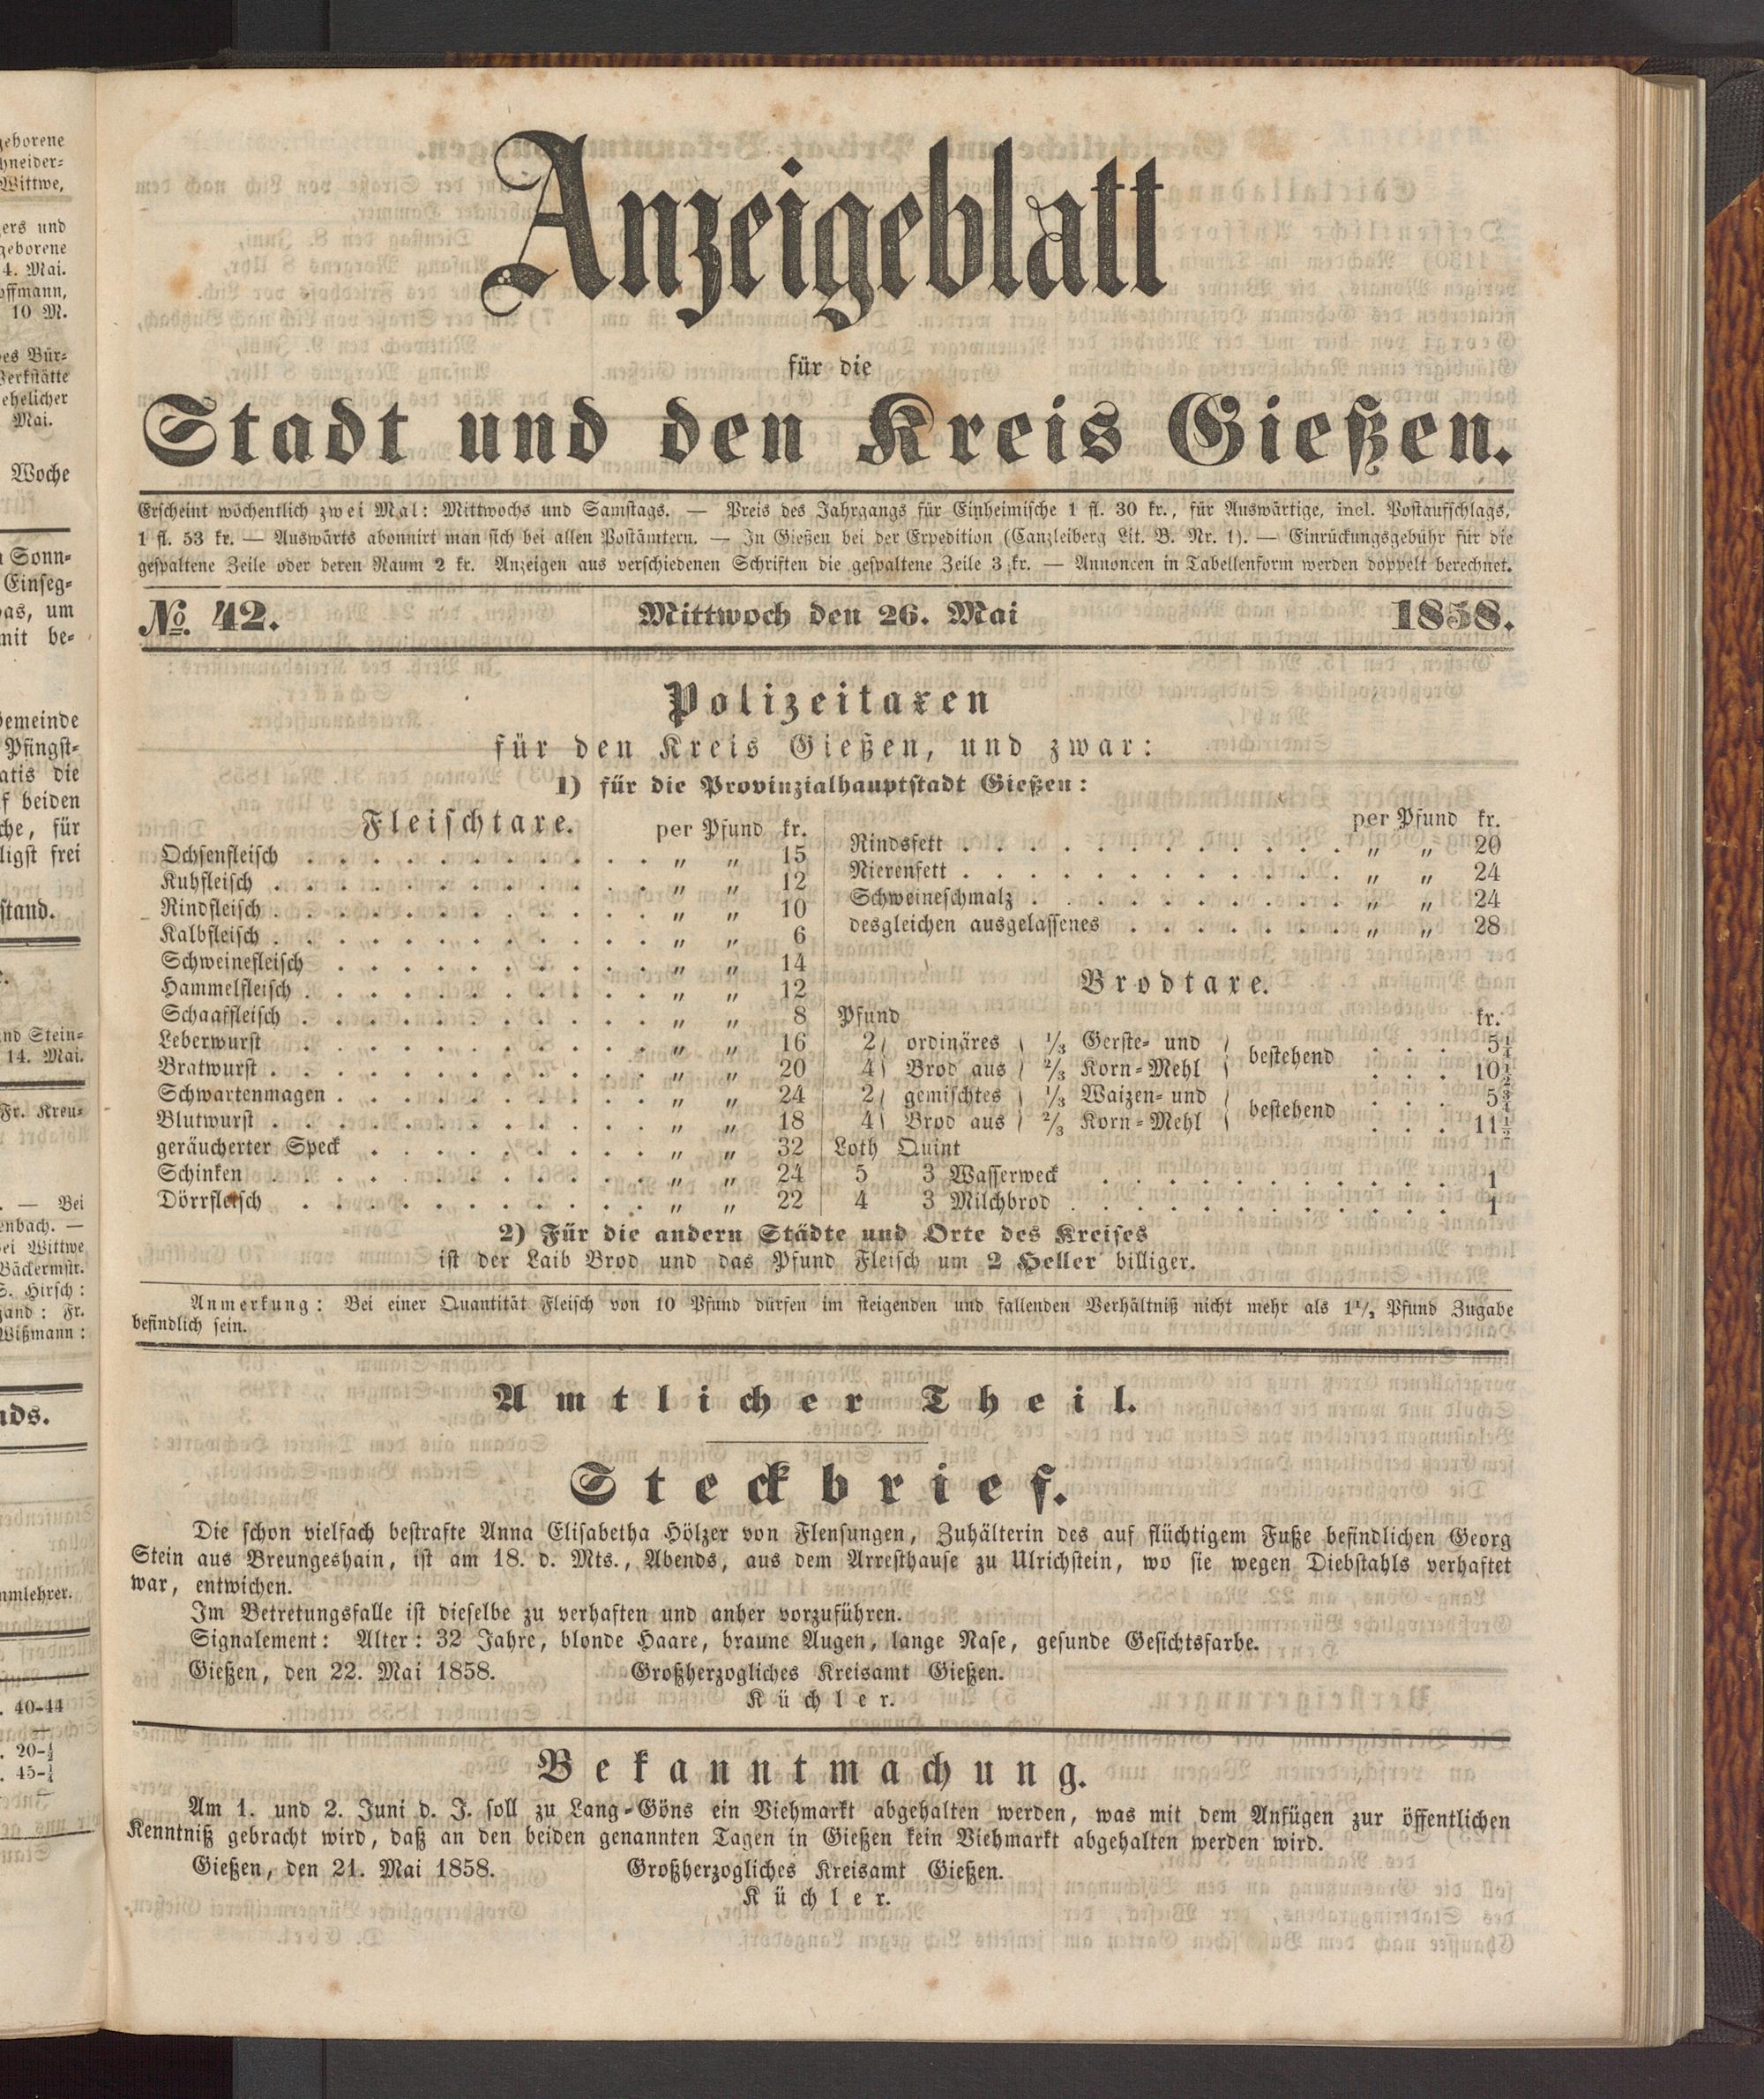 Anzeigeblatt
für die
Stadt und den Kreis Gießen.
Erscheint wöchentlich zwei Mal: Mittwochs und Samstags. — Preis des Jahrgangs für Einheimische 1 fl. 30 kr., für Auswärtige, incl. Postaufschlags,
1 fl. 53 kr. — Auswärts abonnirt man sich bei allen Postämtern. — In Gießen bei der Expedition (Canzleiberg Lit. B. Nr. 1). — Einrückungsgebühr für die
gespaltene Zeile oder deren Raum 2 kr. Anzeigen aus verschiedenen Schriften die gespaltene Zeile 3 kr. — Annoncen in Tabellenform werden doppelt berechnet.
№ 42. Mittwoch den 26. Mai 1858.
Polizeitaxen
für den Kreis Gießen, und zwar:
1) für die Provinzialhauptstadt Gießen:
Fleischtaxe. per Pfund kr.
Ochsenfleisch . . . . . . . . . . . . . „ „ 15
Kuhfleisch . . . . . . . . . . . . . . „ „ 12
Rindfleisch . . . . . . . . . . . . . . „ „ 10
Kalbfleisch . . . . . . . . . . . . . . „ „ 6
Schweinefleisch . . . . . . . . . . . . „ „ 14
Hammelfleisch . . . . . . . . . . . . . „ „ 12
Schaaffleisch . . . . . . . . . . . . . „ „ 8
Leberwurst . . . . . . . . . . . . . „ „ 16
Bratwurst . . . . . . . . . . . . . . „ „ 20
Schwartenmagen . . . . . . . . . . . . „ „ 24
Blutwurst . . . . . . . . . . . . . . „ „ 18
geräucherter Speck . . . . . . . . . . . „ „ 32
Schinken . . . . . . . . . . . . . . „ „ 24
Dörrfleisch . . . . . . . . . . . . . „ „ 22
per Pfund kr.
Rindsfett . . . . . . . . . . . . . . „ „ 20
Nierenfett . . . . . . . . . . . . . . „ „ 24
Schweineschmalz . . . . . . . . . . . . „ „ 24
desgleichen ausgelassenes . . . . . . . . „ „ 28
Brodtaxe.
Pfund kr.
2 ordinäres 1/3 Gerste- und bestehend . . . 5 1/4
4 Brod aus 2/3 Korn-Mehl . . . 10 1/2
2 gemischtes 1/3 Waizen- und bestehend . . . 5 3/4
4 Brod aus 2/3 Korn-Mehl . . . 11 1/2
Loth Quint
5 3 Wasserweck . . . . . . . . . . . . . 1
4 3 Milchbrod . . . . . . . . . . . . . . 1
2) Für die andern Städte und Orte des Kreises
ist der Laib Brod und das Pfund Fleisch um 2 Heller billiger.
Anmerkung: Bei einer Quantität Fleisch von 10 Pfund dürfen im steigenden und fallenden Verhältniß nicht mehr als 1 1/2 Pfund Zugabe
befindlich sein.
Amtlicher Theil.
Steckbrief.
Die schon vielfach bestrafte Anna Elisabetha Hölzer von Flensungen, Zuhälterin des auf flüchtigem Fuße befindlichen Georg
Stein aus Breungeshain, ist am 18. d. Mts., Abends, aus dem Arresthause zu Ulrichstein, wo sie wegen Diebstahls verhaftet
war, entwichen.
Im Betretungsfalle ist dieselbe zu verhaften und anher vorzuführen.
Signalement: Alter: 32 Jahre, blonde Haare, braune Augen, lange Nase, gesunde Gesichtsfarbe.
Gießen, den 22. Mai 1858. Großherzogliches Kreisamt Gießen.
Küchler.
Bekanntmachung.
Am 1. und 2. Juni d. J. soll zu Lang-Göns ein Viehmarkt abgehalten werden, was mit dem Anfügen zur öffentlichen
Kenntniß gebracht wird, daß an den beiden genannten Tagen in Gießen kein Viehmarkt abgehalten werden wird.
Gießen, den 21. Mai 1858. Großherzogliches Kreisamt Gießen.
Küchler.